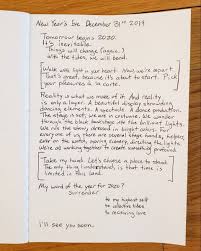 New Year's Eve December 31st 2019
Tomorrow begins 2020.
It's inevitable.
Things will change (again.)
With the tides, we will bend.
[Walk with lost in your heart. Now, we're apart.
That's great, because it's about to start. Pick
your pleasures à la carte.
Reality is what we make of it. And reality
is only a layer. A beautiful display shrouding
dancing elements. A spectacle. A dance production.
The stage is set, we are in costume. We wander
through the black backdrops into the brilliant lights.
We mix the winery dressed in bright colors. For
everyone of us, there are several stage hands, helpers
even on the watch, moving scenery, directing the lights.
We're all working together to create something profound.
[Take my hand. Let's choose a place to stand.
The only thing I understand, is that time is
limited in this land.
My word of the year for 2020?
Surrender
to my highest self
to collective ideas
to receiving love
I'll see you soon.